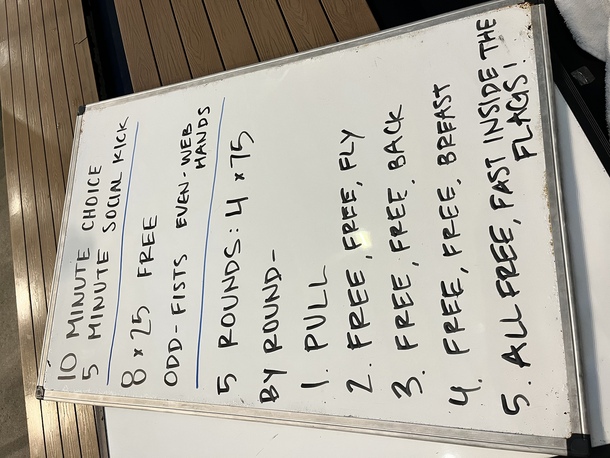 10 MINUTE CHOICE
5 MINUTE SOCIAL KICK
8 x 25 FREE
ODD-FISTS EVEN-WEB
HANDS
5 ROUNDS: 4 x 75
BY ROUND-
1. PULL
2. FREE, FREE, FLY
3. FREE, FREE, BACK
4. FREE, FREE, BREAST
5. ALL FREE, FAST INSIDE THE
FLAGS!